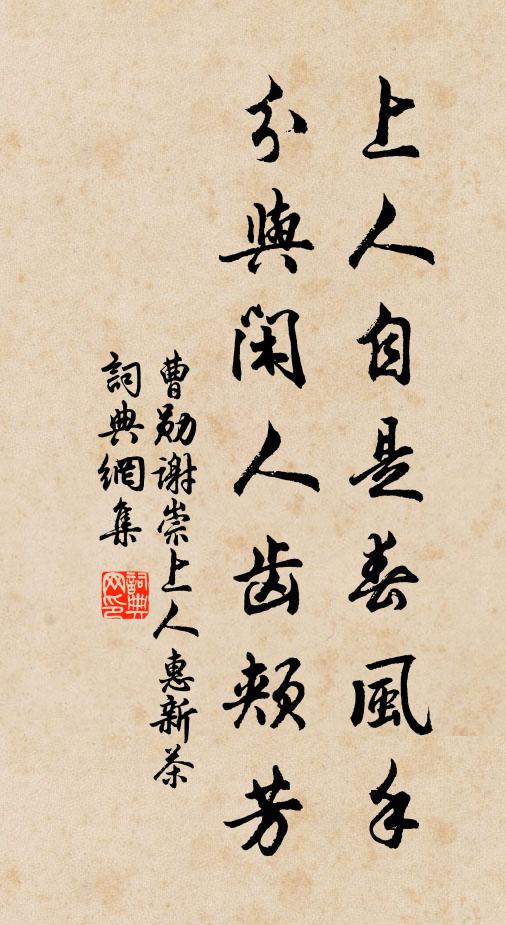 上人自是春風手
分與閑人齒頰芳
曹勛謝崇上人惠新茶
詞典網集
詞典网印